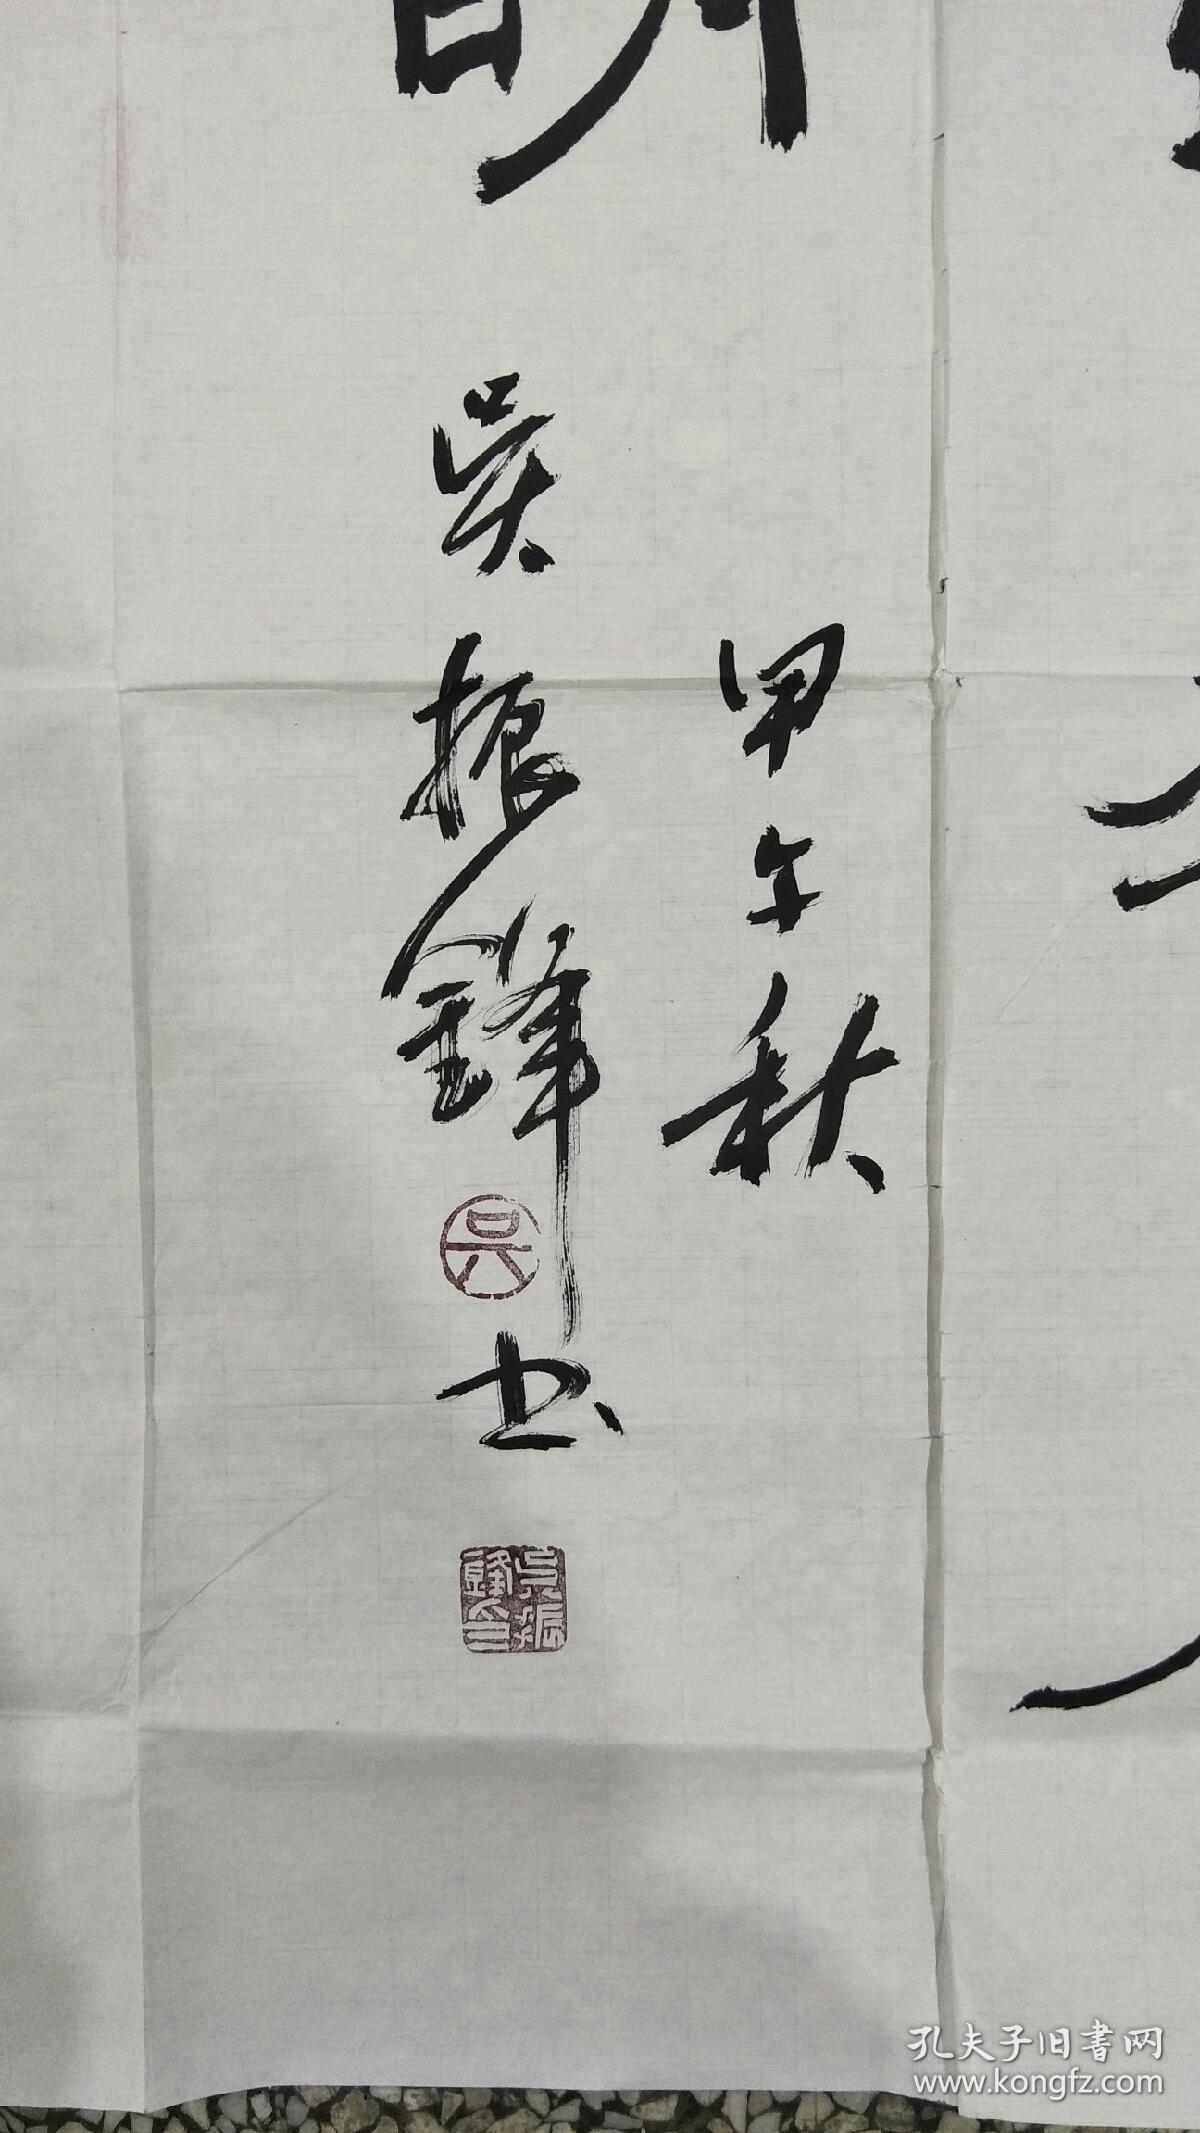 甲午秋
吴振锋书
吴
吴振锋印
孔夫子旧書网
www.kongfz.com